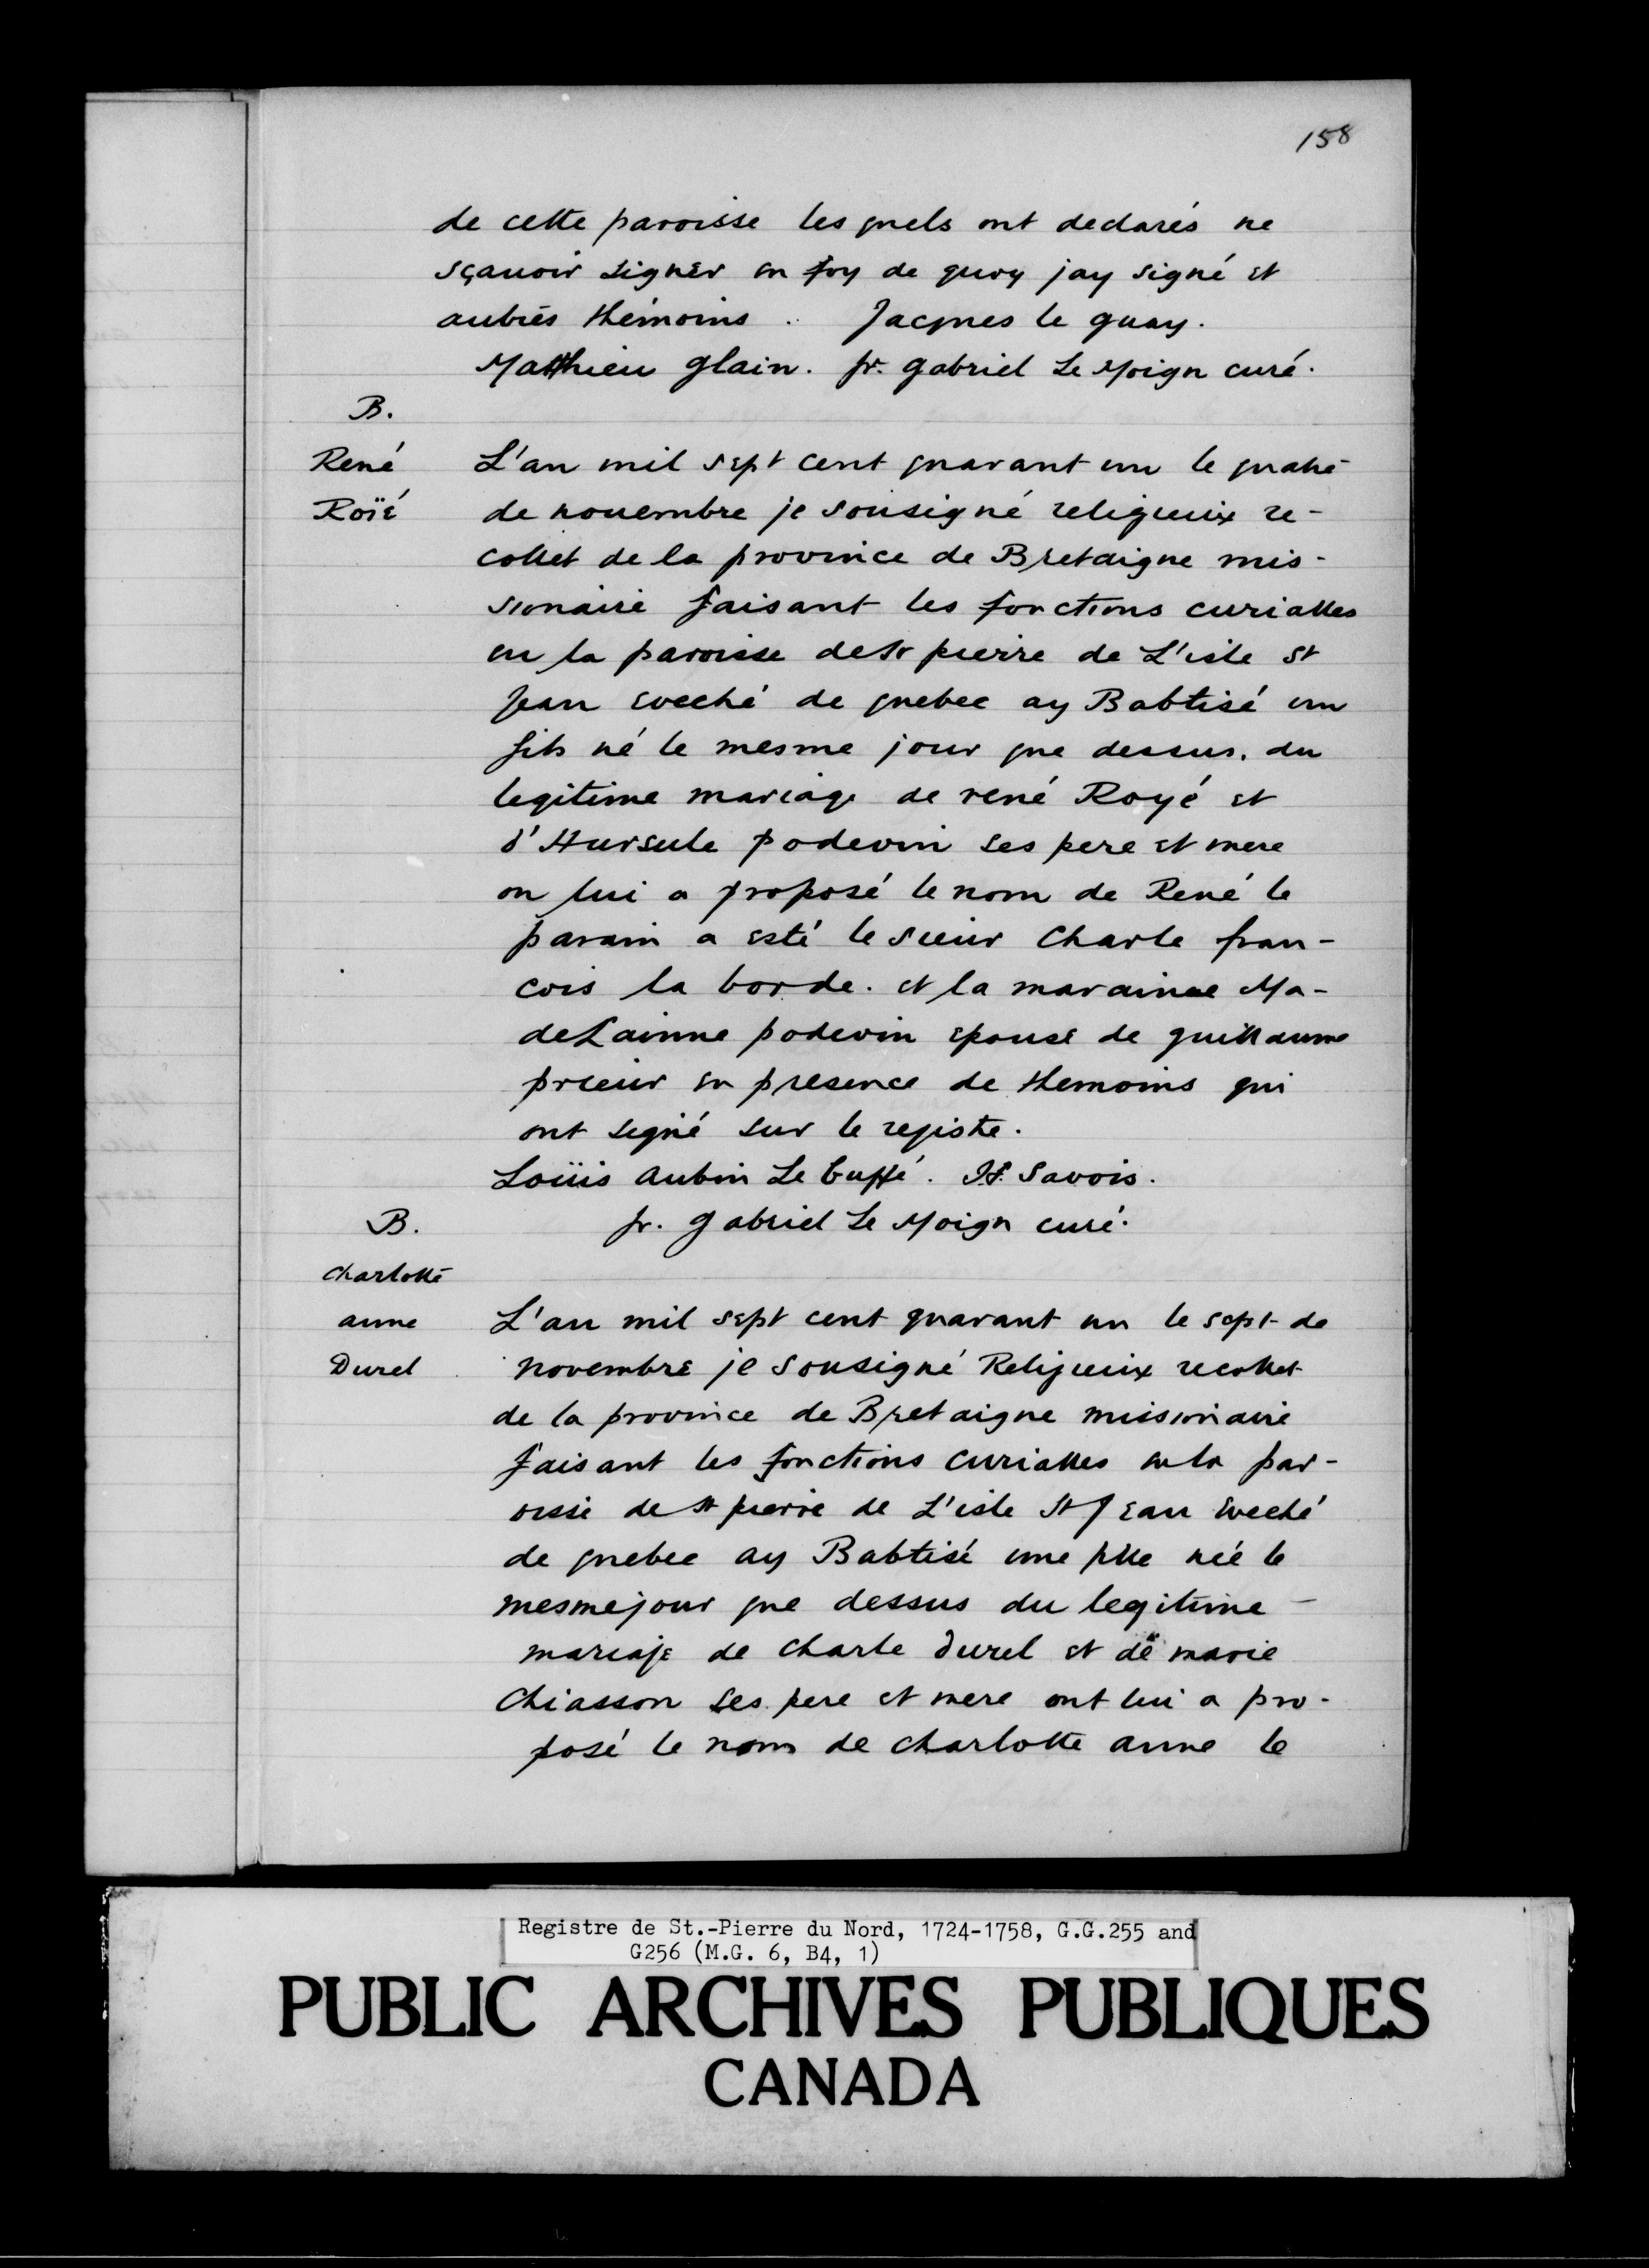 158
de cette paroisse lesquels ont declarés ne
sçauoir signer en foy de quoy jay signé et
autrés thémoins. Jacques le quay.
Matthieu glain. fr. gabriel Le Moign curé.
B.
René
Roïé
L'an mil sept cent quarant un le quatre
de nouembre je sousigné religieuix re-
collet de la province de Bretaigne mis-
sionaire faisant les fonctions curialles
en la paroisse de St pierre de L'isle St
Jean eveché de quebec ay Babtisé un
fils né le mesme jour que dessus. du
legitime mariage de rené Royé et
d'Hursule podevin ses pere et mere
on lui a proposé le nom de René le
parain a esté le sieur Charle fran-
cois la borde. et la marainne Ma-
deLainne podevin epouse de guillaume
prieur en presence de themoins qui
ont signé sur le registe.
Loüis aubin Le buffé. J.f. Savois.
fr. gabriel Le Moign curé.
B.
Charlotte
anne
Durel
L'an mil sept cent quarant un le sept de
novembre je sousigné Religieuix recollet
de la province de Bretaigne missionaire
faisant les fonctions curialles en la par-
oisse de st pierre de L'isle St Jean Eveché
de quebec ay Babtisé une fille née le
mesme jour que dessus du legitime
mariaje de Charle durel et de marie
Chiasson ses pere et mere ont lui a pro-
posé le nom de charlotte anne le
Registre de St.-Pierre du Nord, 1724-1758, G.G.255 and
G256 (M.G. 6, B4, 1)
PUBLIC ARCHIVES PUBLIQUES
CANADA